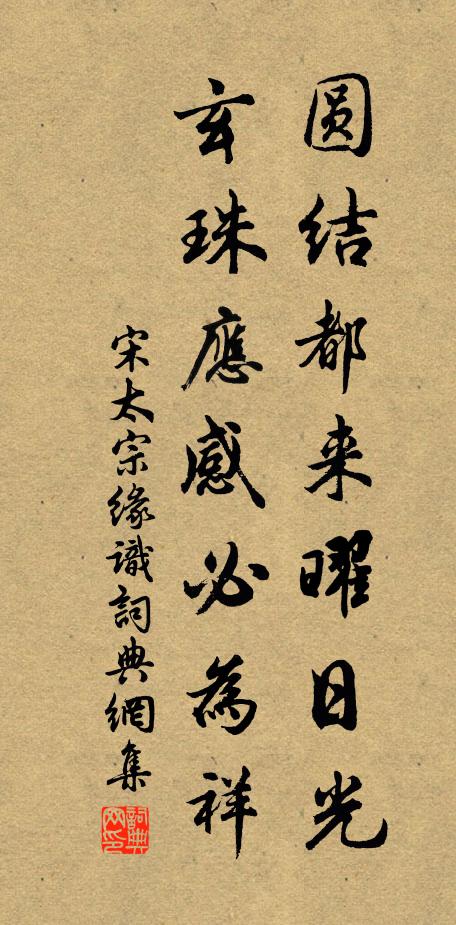 圆结都来曜日光
玄珠應感必為祥
宋太宗缘識詞典網集
詞典网印